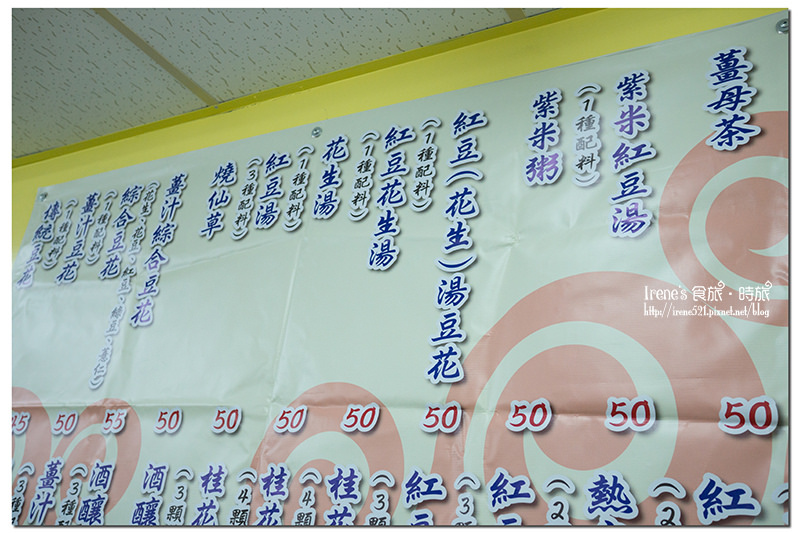 薑母茶
紫米紅豆湯
(1種配料)
紫米粥
紅豆(花生)湯豆花
(1種配料)
紅豆花生湯
(1種配料)
花生湯
(1種配料)
紅豆湯
(3種配料)
燒仙草
薑汁綜合豆花
(花生、花豆、紅豆、綠豆、薏仁)
綜合豆花
(1種配料)
薑汁豆花
(1種配料)
傳統豆花
50
50
50
50
50
50
50
50
55
50
紅
(2
熱
(2
紅
(3
紅
(3顆
桂花
(4顆
桂花
(4顆
桂花
(3顆
酒釀
酒釀
(3種
薑汁
(3種
Irene's 食旅・時旅
http://irene521.pixnet.net/blog